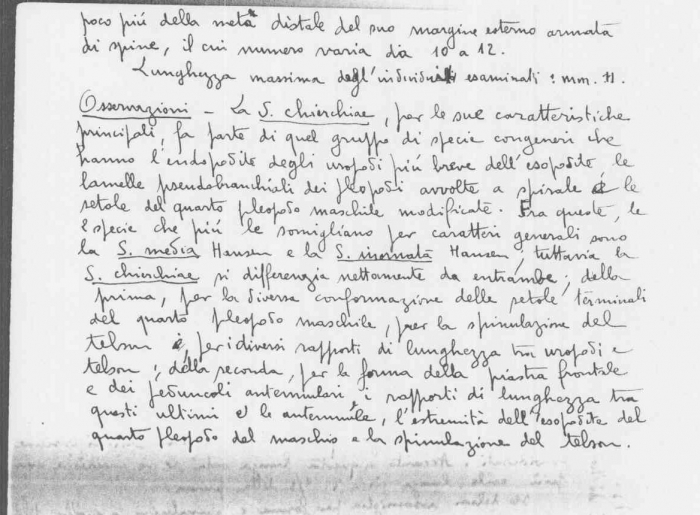 poco più della metà distale del suo margine esterno armata
di spine, il cui numero varia da 10 a 12.
Lunghezza massima degl'individui esaminati: mm. 11.
Osservazioni - La S. chierchiae, per le sue caratteristiche
principali, fa parte di quel gruppo di specie congeneri che
hanno l'endopodite degli uropodi più breve dell'esopodite, le
lamelle pseudobranchiali dei pleopodi avvolte a spirale e le
setole del quarto pleopodo maschile modificate. Fra queste, le
2 specie che più le somigliano per caratteri generali sono
la S. media Hansen e la S. inornata Hansen; tuttavia la
S. chierchiae si differenzia nettamente da entrambe; della
prima, per la diversa conformazione delle setole terminali
del quarto pleopodo maschile, per la spinulazione del
telson e, per i diversi rapporti di lunghezza tra uropodi e
telson; della seconda, per la forma della piastra frontale
e dei peduncoli antennulari, i rapporti di lunghezza tra
questi ultimi e le antennule, l'estremità dell'esopodite del
quarto pleopodo del maschio e la spinulazione del telson.